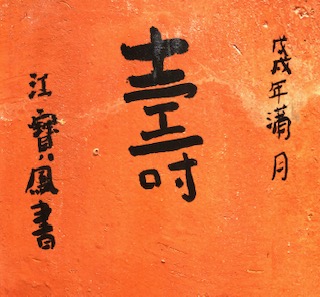 戊戌年满月
壽
江寶鳳書